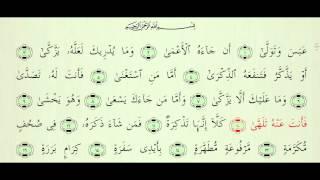 بسم الله الرحمن الرحيم
عَبَسَ وَتَوَلَّىٰٓ ۝ أَن جَآءَهُ ٱلْأَعْمَىٰ ۝ وَمَا يُدْرِيكَ لَعَلَّهُۥ يَزَّكَّىٰٓ ۝
أَوْ يَذَّكَّرُ فَتَنفَعَهُ ٱلذِّكْرَىٰٓ ۝ أَمَّا مَنِ ٱسْتَغْنَىٰ ۝ فَأَنتَ لَهُۥ تَصَدَّىٰ
۝ وَمَا عَلَيْكَ أَلَّا يَزَّكَّىٰ ۝ وَأَمَّا مَن جَآءَكَ يَسْعَىٰ ۝ وَهُوَ يَخْشَىٰ ۝
فَأَنتَ عَنْهُ تَلَهَّىٰ ۝ كَلَّآ إِنَّهَا تَذْكِرَةٌ ۝ فَمَن شَآءَ ذَكَرَهُۥ ۝ فِى صُحُفٍ
مُّكَرَّمَةٍ ۝ مَّرْفُوعَةٍ مُّطَهَّرَةٍۭ ۝ بِأَيْدِى سَفَرَةٍ ۝ كِرَامٍۭ بَرَرَةٍ ۝